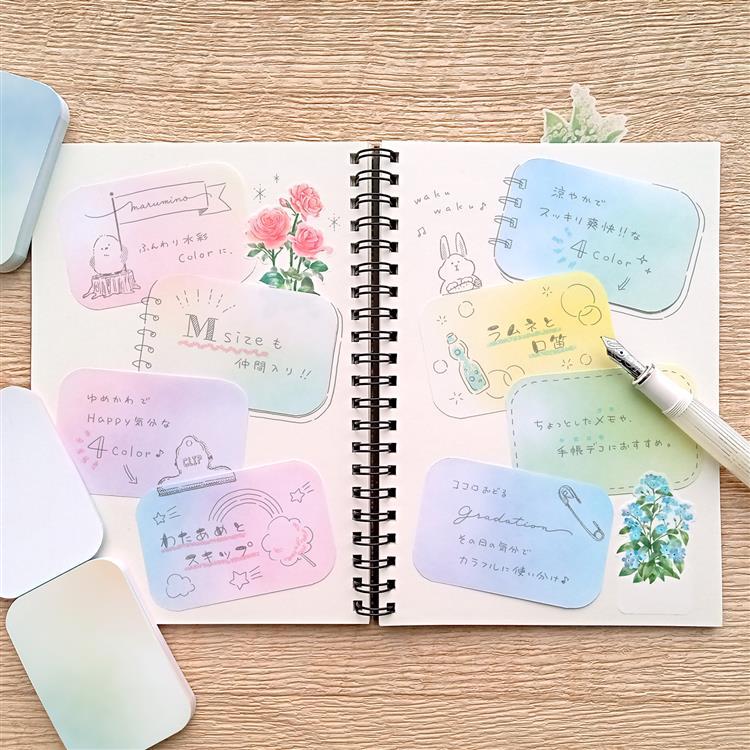 marumino
ふんわり水彩
Colorに、
M sizeも
仲間入り!!
ゆめかわで
Happy気分な
4 Color♪
CLIP
わたあめと
スキップ
waku
waku♪
涼やかで
スッキリ爽快!!な
4 Color
ラムネと
口笛
ちょっとしたメモや、
手帳デコにおすすめ。
ココロおどる
Gradation
その日の気分で
カラフルに使い分け♪